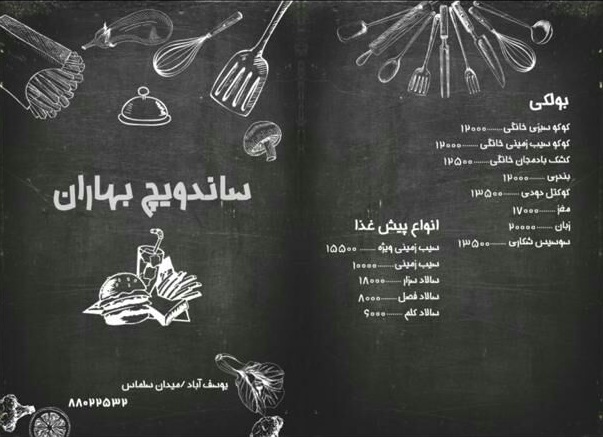 بولکی
کوکو سبزی خانگی.......۱۲۰۰۰
کوکو سیب زمینی خانگی.......۱۲۰۰۰
کشک بادمجان خانگی.......۱۲۵۰۰
بندری.......۱۲۰۰۰
کوکتل دودی.......۱۳۵۰۰
مغز.......۱۷۰۰۰
زبان.......۲۰۰۰۰
سوسیس شکاری.......۱۳۵۰۰
انواع پیش غذا
سیب زمینی ویژه.......۱۵۵۰۰
سیب زمینی.......۱۰۰۰۰
سالاد سزار.......۱۸۰۰۰
سالاد فصل.......۸۰۰۰
سالاد کلم.......۶۰۰۰
ساندویچ بهاران
یوسف آباد /میدان سلماس
۸۸۰۲۲۵۳۲